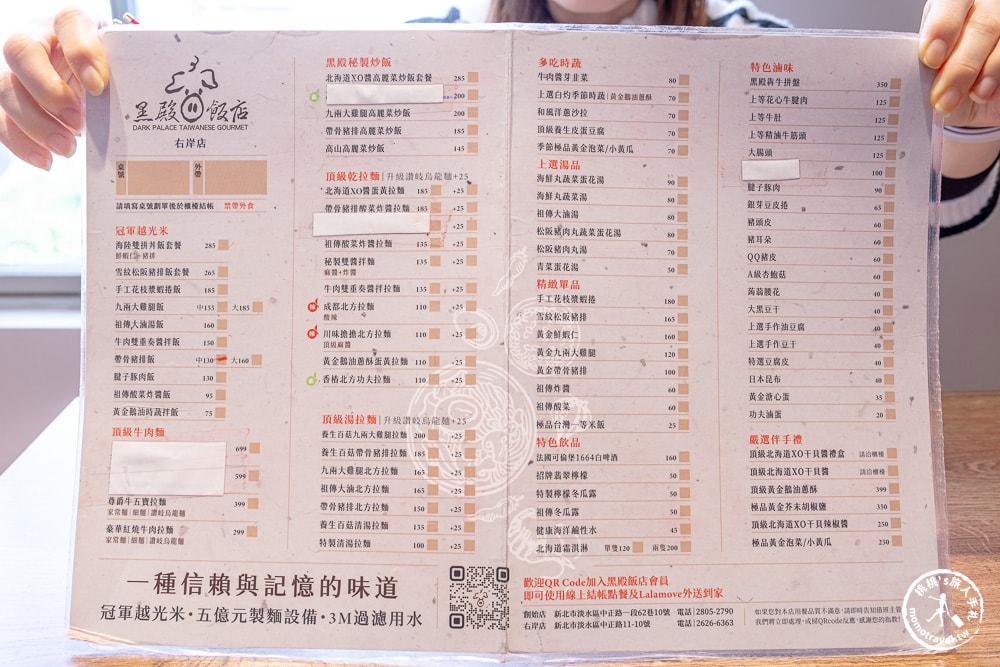 黑殿飯店
DARK PALACE TAIWANESE GOURMET
右岸店
桌號
外帶
請填寫桌號劃單後於櫃檯結帳 禁帶外食
冠軍越光米
海陸雙拼丼飯套餐 285
鮮蝦仁+豬排
雪紋松阪豬排飯套餐 265
手工花枝漿蝦捲飯 185
九兩大雞腿飯 中155 大185
祖傳大滷湯飯 160
牛肉雙重奏醬拌飯 150
帶骨豬排飯 中130 大160
腱子豚肉飯 130
祖傳酸菜炸醬飯 95
黃金鵝油時蔬拌飯 75
頂級牛肉麵
699
599
尊爵牛五寶拉麵 399
家常麵|細麵|讚岐烏龍麵
豪華紅燒牛肉拉麵 299
家常麵|細麵|讚岐烏龍麵
黑殿秘製炒飯
北海道XO醬高麗菜炒飯套餐 285
200
九兩大雞腿高麗菜炒飯 200
帶骨豬排高麗菜炒飯 185
高山高麗菜炒飯 145
頂級乾拉麵|升級讚岐烏龍麵+25
北海道XO醬蛋黃拉麵 185 +25
帶骨豬排酸菜炸醬拉麵 185 +25
+25
祖傳酸菜炸醬拉麵 135 +25
秘製雙醬拌麵 135 +25
麻醬+炸醬
牛肉雙重奏醬拌拉麵 135 +25
成都北方拉麵 110 +25
酸辣
川味擔擔北方拉麵 110 +25
頂級麻醬
黃金鵝油蔥酥蛋黃拉麵 110 +25
香椿北方功夫拉麵 110 +25
頂級湯拉麵|升級讚岐烏龍麵+25
養生百菇九兩大雞腿拉麵 200 +25
養生百菇帶骨豬排拉麵 185 +25
九兩大雞腿北方拉麵 165 +25
祖傳大滷北方拉麵 165 +25
帶骨豬排北方拉麵 150 +25
養生百菇清湯拉麵 135 +25
特製清湯拉麵 100 +25
多吃時蔬
牛肉醬芽韭菜 80
上選白灼季節時蔬|黃金鵝油蔥酥 70
和風洋蔥沙拉 70
頂級養生皮蛋豆腐 70
季節極品黃金泡菜/小黃瓜 70
上選湯品
海鮮丸蔬菜蛋花湯 90
海鮮丸蔬菜湯 80
祖傳大滷湯 80
松阪豬肉丸蔬菜蛋花湯 80
松阪豬肉丸湯 70
青菜蛋花湯 50
精緻單品
手工花枝漿蝦捲 180
雪紋松阪豬排 165
黃金鮮蝦仁 160
黃金九兩大雞腿 120
黃金帶骨豬排 100
祖傳炸醬 60
祖傳酸菜 60
極品台灣一等米飯 25
特色飲品
法國可倫堡1664白啤酒 160
招牌翡翠檸檬 50
特製檸檬冬瓜露 50
祖傳冬瓜露 50
健康海洋鹼性水 45
北海道霜淇淋 單隻120 兩隻200
特色滷味
黑殿犇牛拼盤 350
上等花心牛腱肉 125
上等牛肚 125
上等精滷牛筋頭 125
大腸頭 125
100
腱子豚肉 90
銀芽豆皮捲 65
豬頭皮 60
豬耳朵 60
QQ豬皮 60
A級杏鮑菇 60
蒟蒻腰花 40
大黑豆干 40
上選手作油豆腐 40
上選手作豆干 40
特選豆腐皮 40
日本昆布 40
黃金溏心蛋 35
功夫滷蛋 20
嚴選伴手禮
頂級北海道XO干貝醬禮盒 請洽櫃檯
頂級北海道XO干貝醬 請洽櫃檯
頂級黃金鵝油蔥酥 399
極品黃金芥末胡椒鹽 330
頂級北海道XO干貝辣椒醬 250
極品黃金泡菜/小黃瓜 250
一種信賴與記憶的味道
冠軍越光米・五億元製麵設備・3M過濾用水
歡迎QR Code加入黑殿飯店會員
即可使用線上結帳點餐及Lalamove外送到家
創始店 新北市淡水區中正路一段62巷10號 電話|2805-2790
右岸店 新北市淡水區中正路11-10號 電話|2626-6363
如果您對本店用餐品質不滿意，請即時告知值班主管
我們將立即處理，或掃QRcode反應，感謝您的指教!
桃桃's旅人手札
momotravel.tw